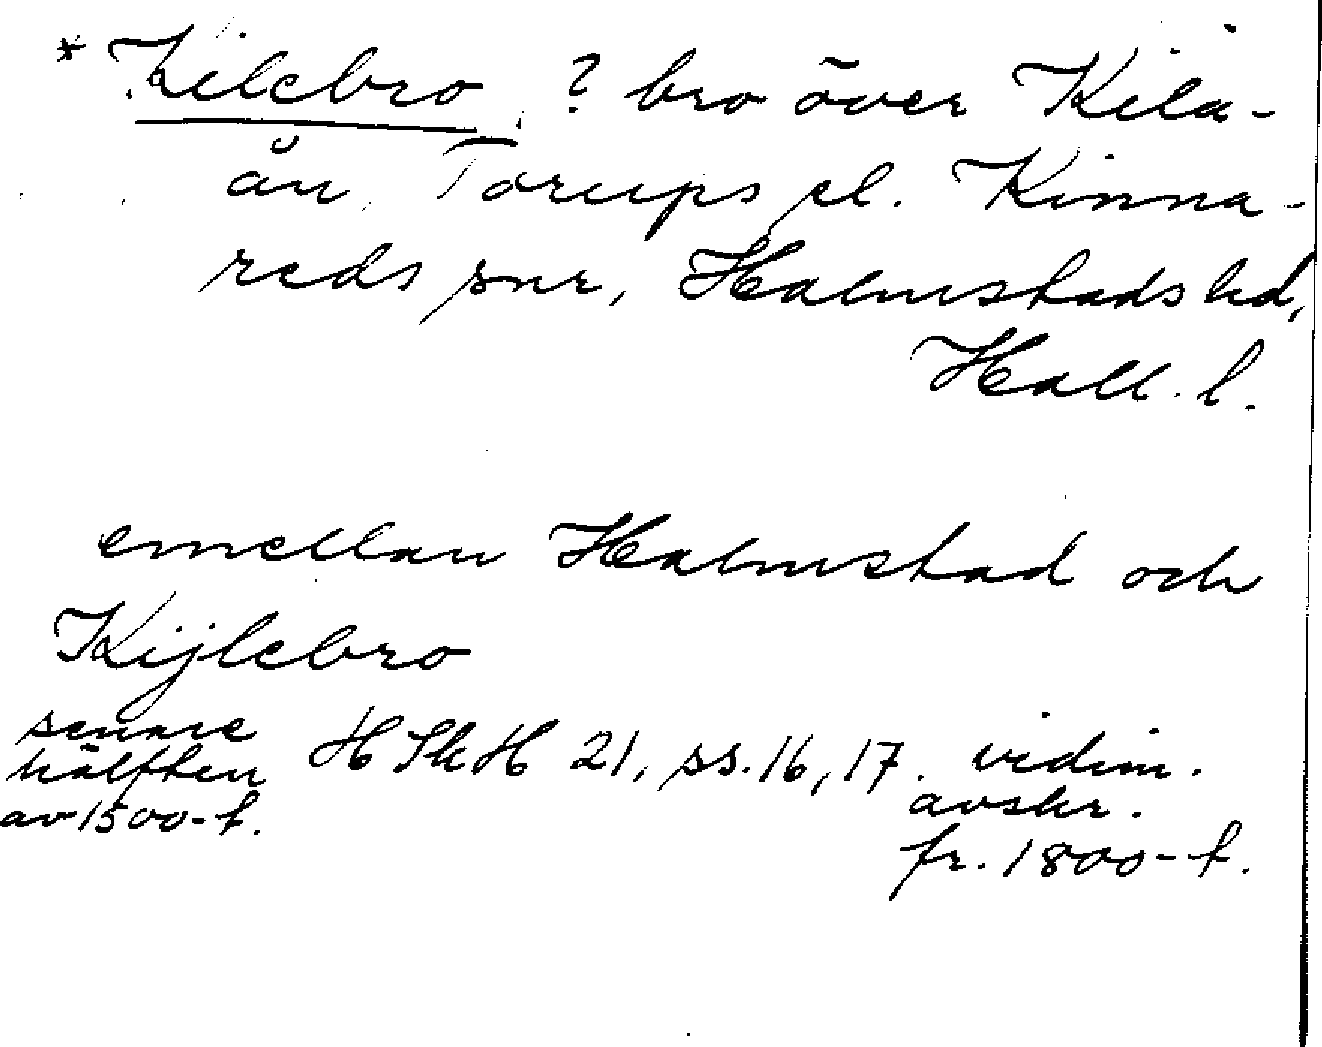 * Kilebro, ? bro över Kila-
ån, Torups el. Kinna-
reds snr, Halmstads hd,
Hall. l.
emellan Halmstad och
Kijlebro
senare
hälften
av 1500-t.
HSkH 21, ss. 16, 17. vidim.
avskr.
fr. 1800-t.